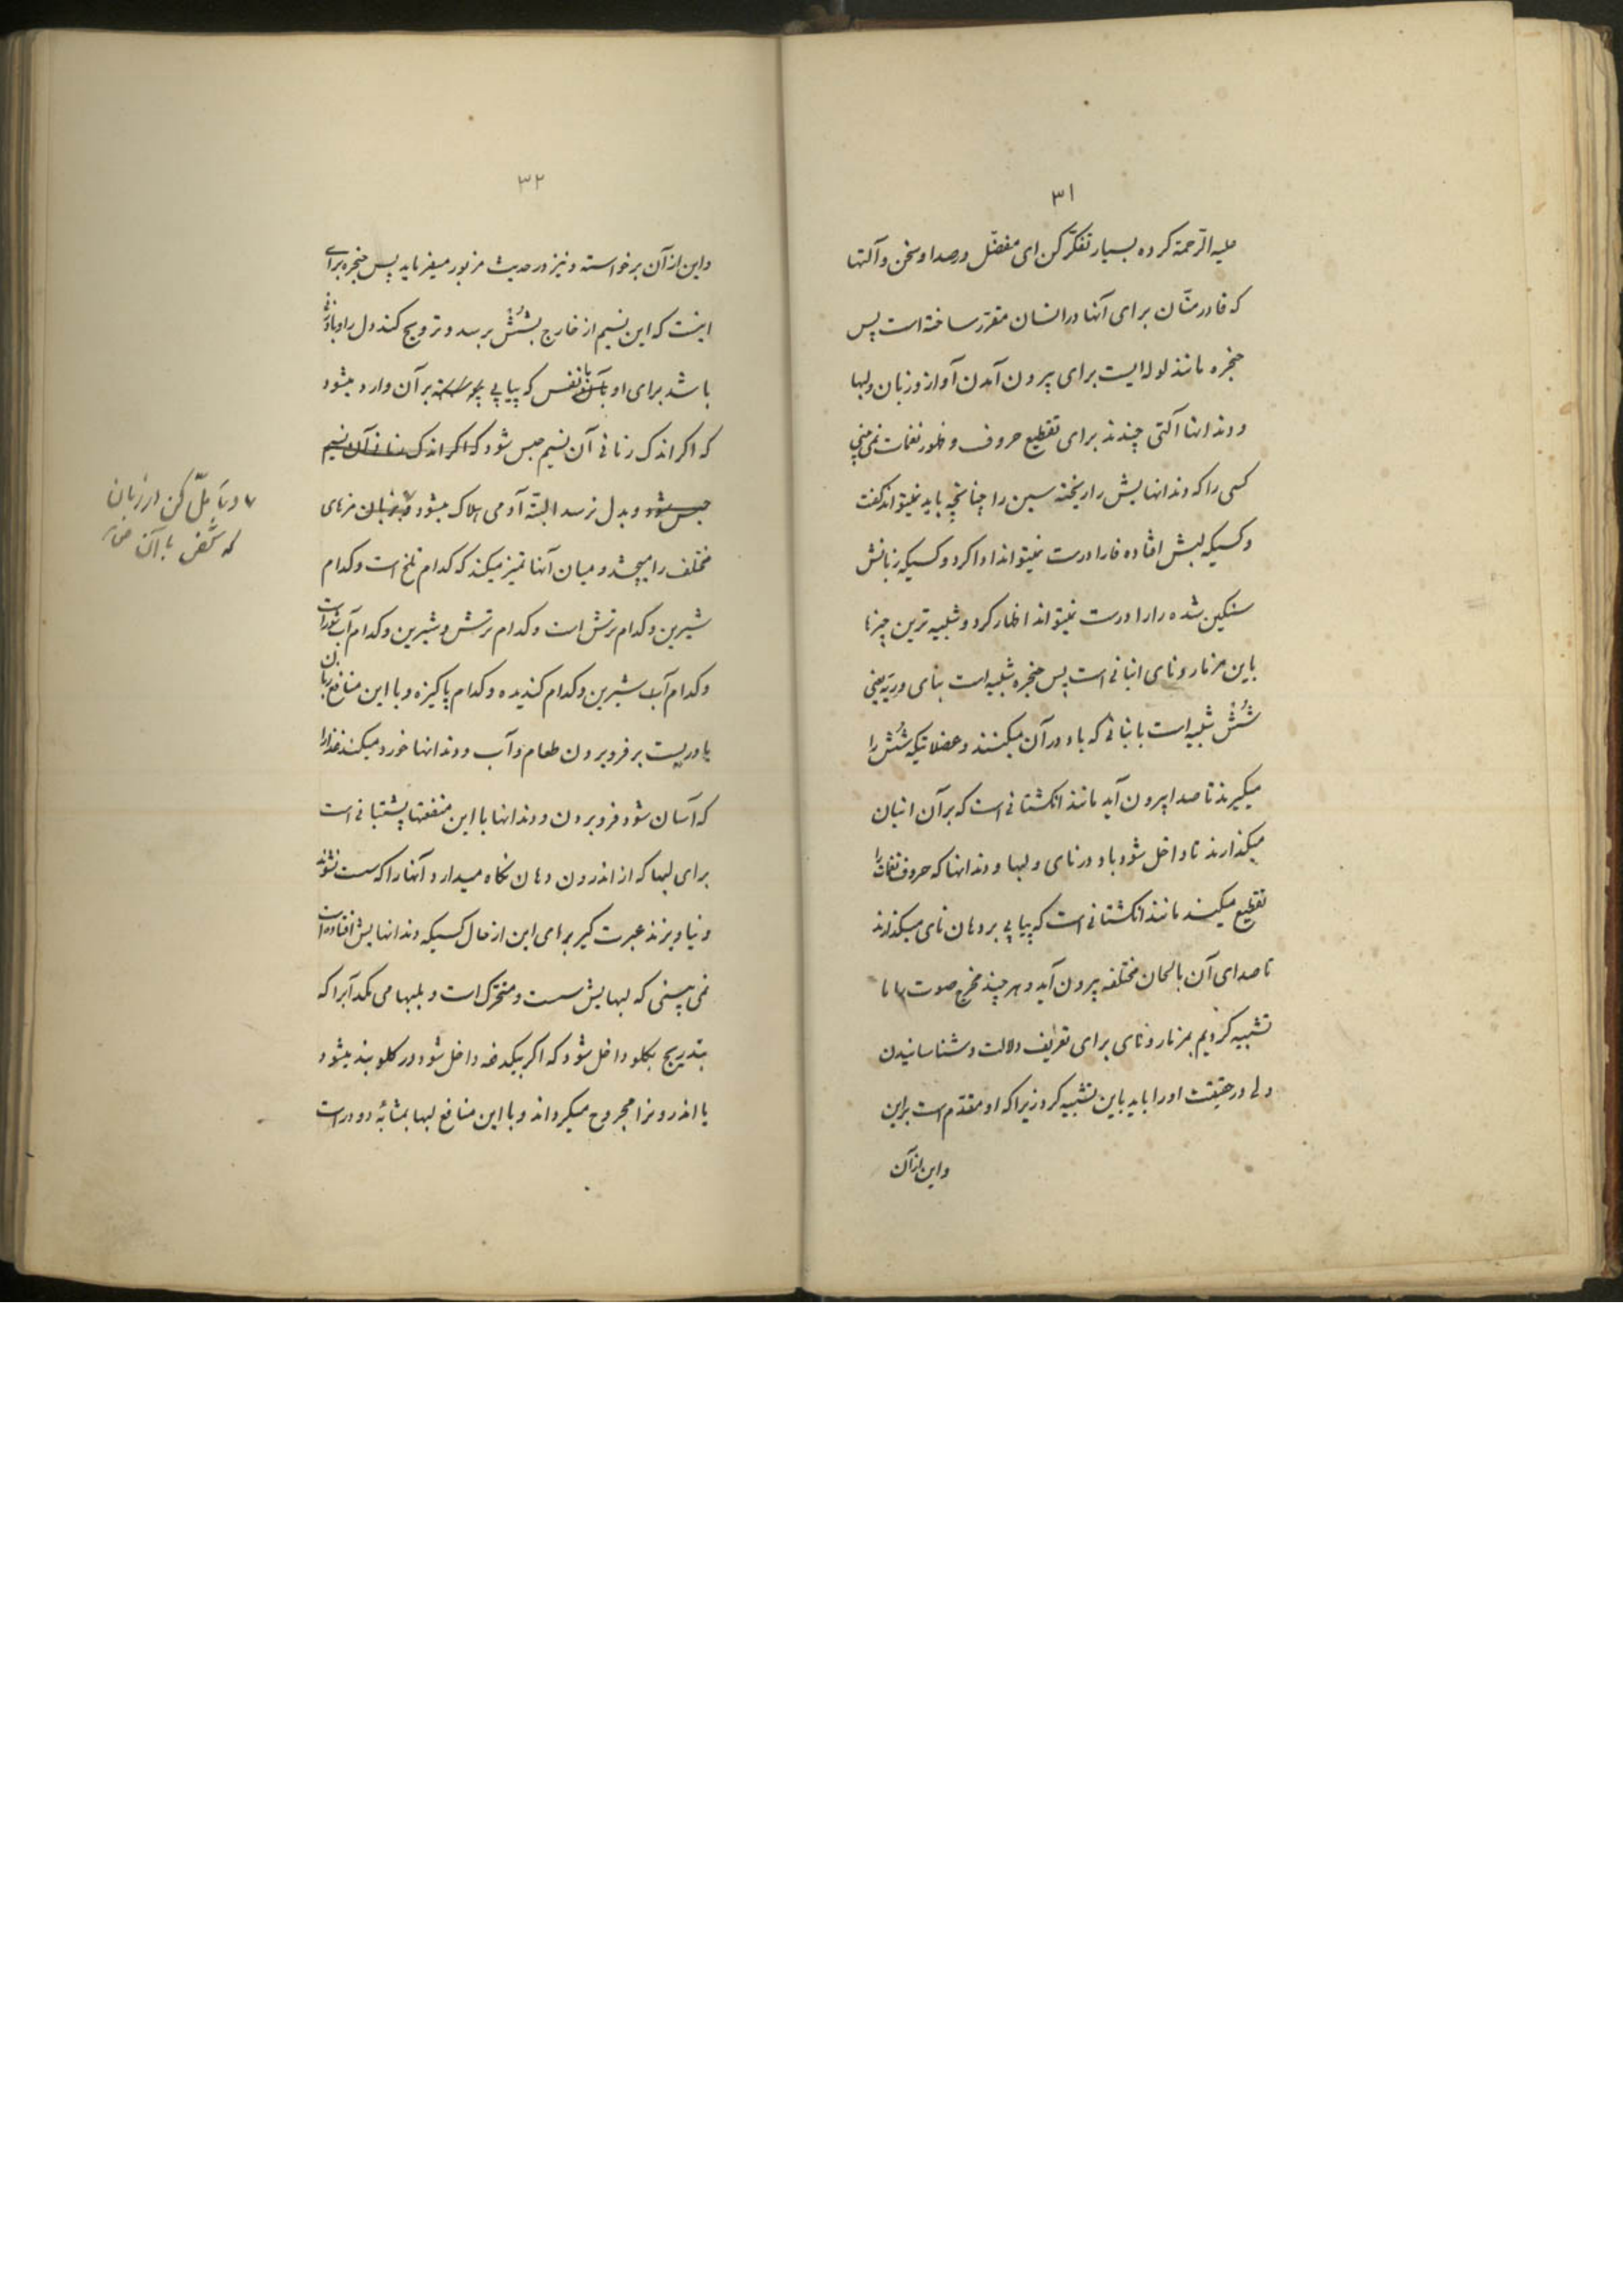 ٣١
علیه الرّحمة کرده بسیار تفکّر کن ای مفضّل در صدا و سخن و آلتها
که قادر منّان برای آنها در انسان مقرّر ساخته است پس
حنجره مانند لوله ایست برای بیرون آمدن آواز و زبان و لبها
و دندانها آلتی چندند برای تقطیع حروف و ظهور نغمات نمی بینی
کسی را که دندانهایش را ریخته سین را چنانچه باید نمیتواند گفت
و کسیکه لبش افتاده فا را درست نمیتواند ادا کرد و کسیکه زبانش
سنگین شده را را درست نمیتواند اظهار کرد و شبیه ترین چیزها
باین مزمار و نای انبانی است پس حنجره شبیه است بنای و ریه یعنی
شُش شبیه است بانبانی که باد در آن میکنند و عضلاتیکه شُش را
میگیرند تا صدا بیرون آید مانند انگشتانی است که بر آن انبان
میگذارند تا داخل شود باد در نای و لبها و دندانها که حروف نغمات را
تقطیع میکنند مانند انگشتانی است که پیاپی بر دهان نای میگذارند
تا صدای آن بالحان مختلفه بیرون آید و هر چند مخرج صوت را ما
تشبیه کردیم بمزمار و نای برای تعریف دلالت و شناسانیدن
ولی در حقیقت او را باید باین تشبیه کرد زیرا که او مقدّم است بر این
و این از آن
٣٢
و این از آن برخواسته و نیز در حدیث مزبور میفرماید پس حنجره برای
اینست که این نسیم از خارج بشُش برسد و ترویج کند دل را و بادزنی
باشد برای او بآن نفس که پیاپی بر آن وارد میشود
که اگر اندک زمانی آن نسیم حبس شود که اگر اندک زمانی آن نسیم
حبس شود و بدل نرسد البتّه آدمی هلاک میشود و بزبان مزهای
٧ و تأمّل کن در زبان
که شخص با آن
مختلف را میچشد و میان آنها تمیز میکند که کدام تلخ است و کدام
شیرین و کدام ترش است و کدام ترش و شیرین و کدام آب شور است
و کدام آب شیرین و کدام گندیده و کدام پاکیزه و با این منافع زبان
یاوریست بر فرو بردن طعام و آب و دندانها خورد میکنند غذا را
که آسان شود فرو بردن و دندانها با این منفعتها پشتبانی است
برای لبها که از اندرون دهان نگاه میدارد آنها را که سست نشوند
و نیاویزند عبرت گیر برای این از حال کسیکه دندانهایش افتاده است
نمی بینی که لبهایش سست و متحرّک است و بلبها می مکد آبرا که
بتدریج بگلو داخل شود که اگر بیکدفعه داخل شود در گلو بند میشود
یا اندرونرا مجروح میگرداند و با این منافع لبها بمثابهٔ دو در است